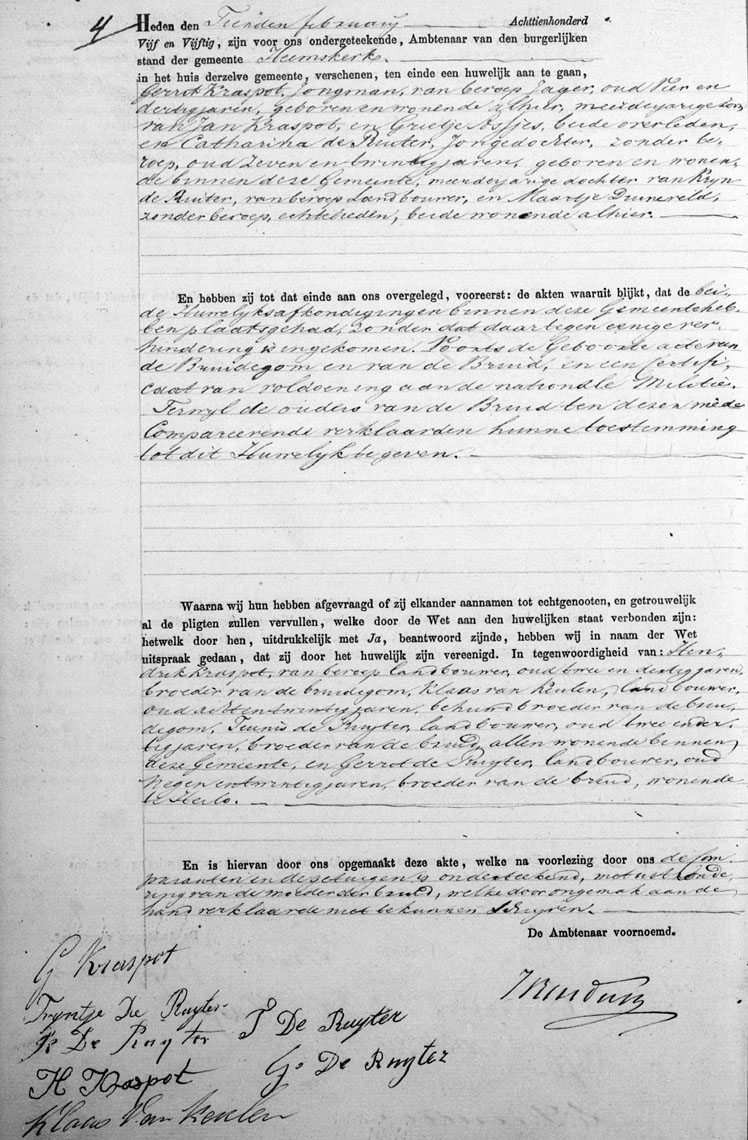 4
Heden den Tienden february Achttienhonderd
Vijf en Vijftig, zijn voor ons ondergeteekende, Ambtenaar van den burgerlijken
stand der gemeente Heemskerk
in het huis derzelve gemeente, verschenen, ten einde een huwelijk aan te gaan,
Gerrot Kraspot, Jongman, van beroep Jager, oud Vier en
dertig jaren, geboren en wonende alhier, meerderjarige zoon
van Jan Kraspot, en Grietje Assjes, beide overleden,
en Catharina de Ruiter, Jongedochter, zonder be-
roep, oud Zeven en twintig jaren, geboren en wonen,
de binnen deze Gemeente, meerderjarige dochter van Kryn
de Ruiter, van beroep Landbouwer, en Maartje Duineveld,
zonder beroep, echtelieden, beide wonende alhier.
En hebben zij tot dat einde aan ons overgelegd, vooreerst: de akten waaruit blijkt, dat de bei-
de Huwelyksafkondigingen binnen deze Gemeente heb-
ben plaatsgehad, zonder dat daartegen eenige ver-
hindering is ingekomen. Voorts de Geboorte acte van
de Bruidegom en van de Bruid, en een Certifi,
caat van voldoening aan de nationale Militie.
Terwyl de ouders van de Bruid ten dezen mede
Compareerende verklaarden hunne toestemming
tot dit Huwelyk te geven.
Waarna wij hun hebben afgevraagd of zij elkander aannamen tot echtgenooten, en getrouwelijk
al de pligten zullen vervullen, welke door de Wet aan den huwelijken staat verbonden zijn:
hetwelk door hen, uitdrukkelijk met Ja, beantwoord zijnde, hebben wij in naam der Wet
uitspraak gedaan, dat zij door het huwelijk zijn vereenigd. In tegenwoordigheid van: Hen-
drik Kraspot, van beroep landbouwer, oud twee en dertig jaren,
broeder van de bruidegom, Klaas van Keulen, landbouwer,
oud acht en twintig jaren, behuwd broeder van de brui-
degom, Teunis de Ruyter, landbouwer, oud twee en der-
tig jaren, broeder van de bruid, allen wonende binnen
deze Gemeente, en Gerrot de Ruyter, landbouwer, oud
Negen en twintig jaren, broeder van de bruid, wonende
te Heilo.
En is hiervan door ons opgemaakt deze akte, welke na voorlezing door ons de Com-
paranten en de getuigen is onderteekend, met uitzonde
ring van de moeder der bruid, welke door ongemak aan de
hand verklaarde niet te kunnen schryven.
De Ambtenaar voornoemd.
G Kraspot
Tryntje De Ruyter
K De Ruyter
T De Ruyter
H Kraspot
G De Ruyter
Klaas Van Keulen